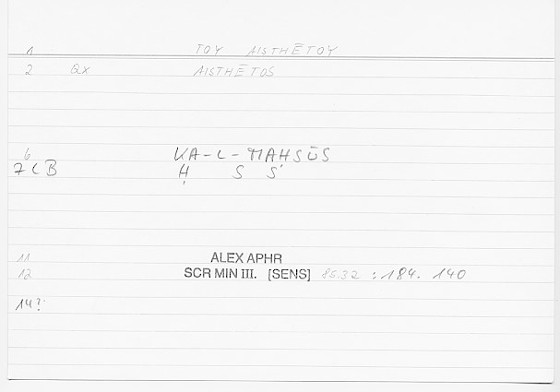 1 TOY AISTHĒTOY
2 GX AISTHĒTOS
6 KA-L-MAHSŪS
7 C B H S S
11 ALEX APHR
12 SCR MIN III. [SENS] 86.32 :184. 140
14?